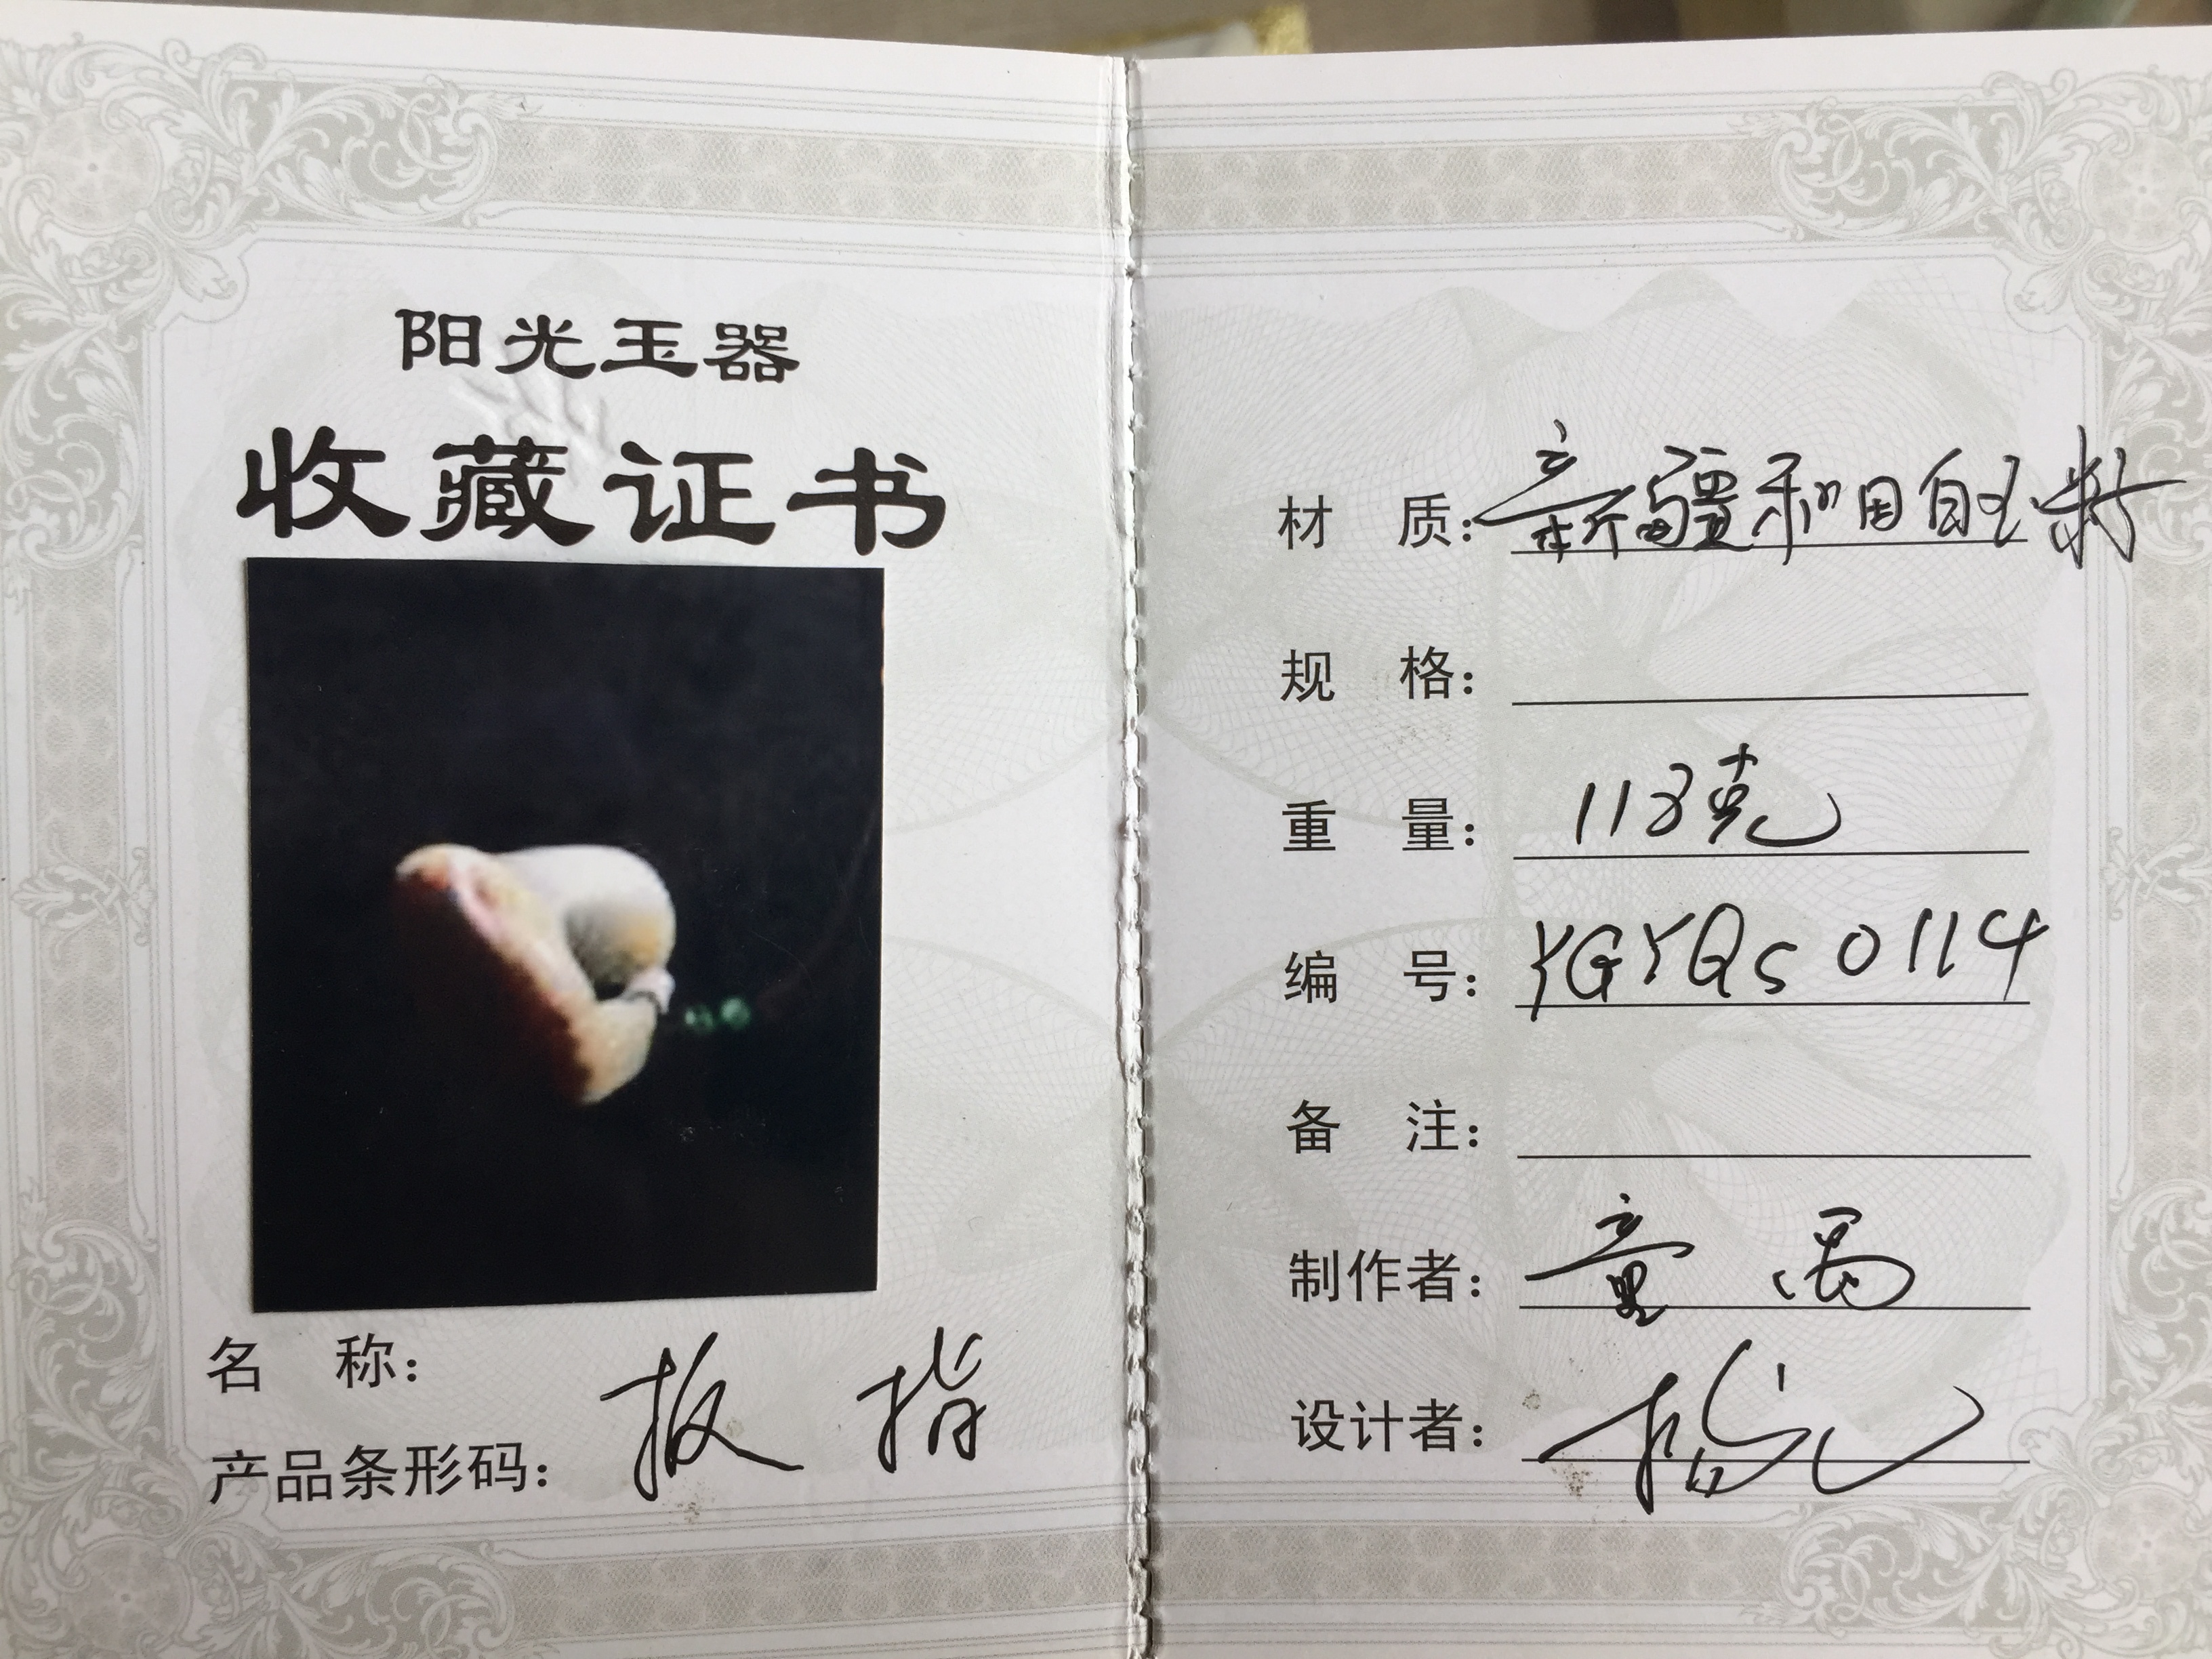 阳光玉器
收藏证书
名 称：扳 指
产品条形码：
材 质：新疆和田白玉籽
规 格：
重 量：113克
编 号：YGYQS0114
备 注：
制作者：童 禹
设计者：